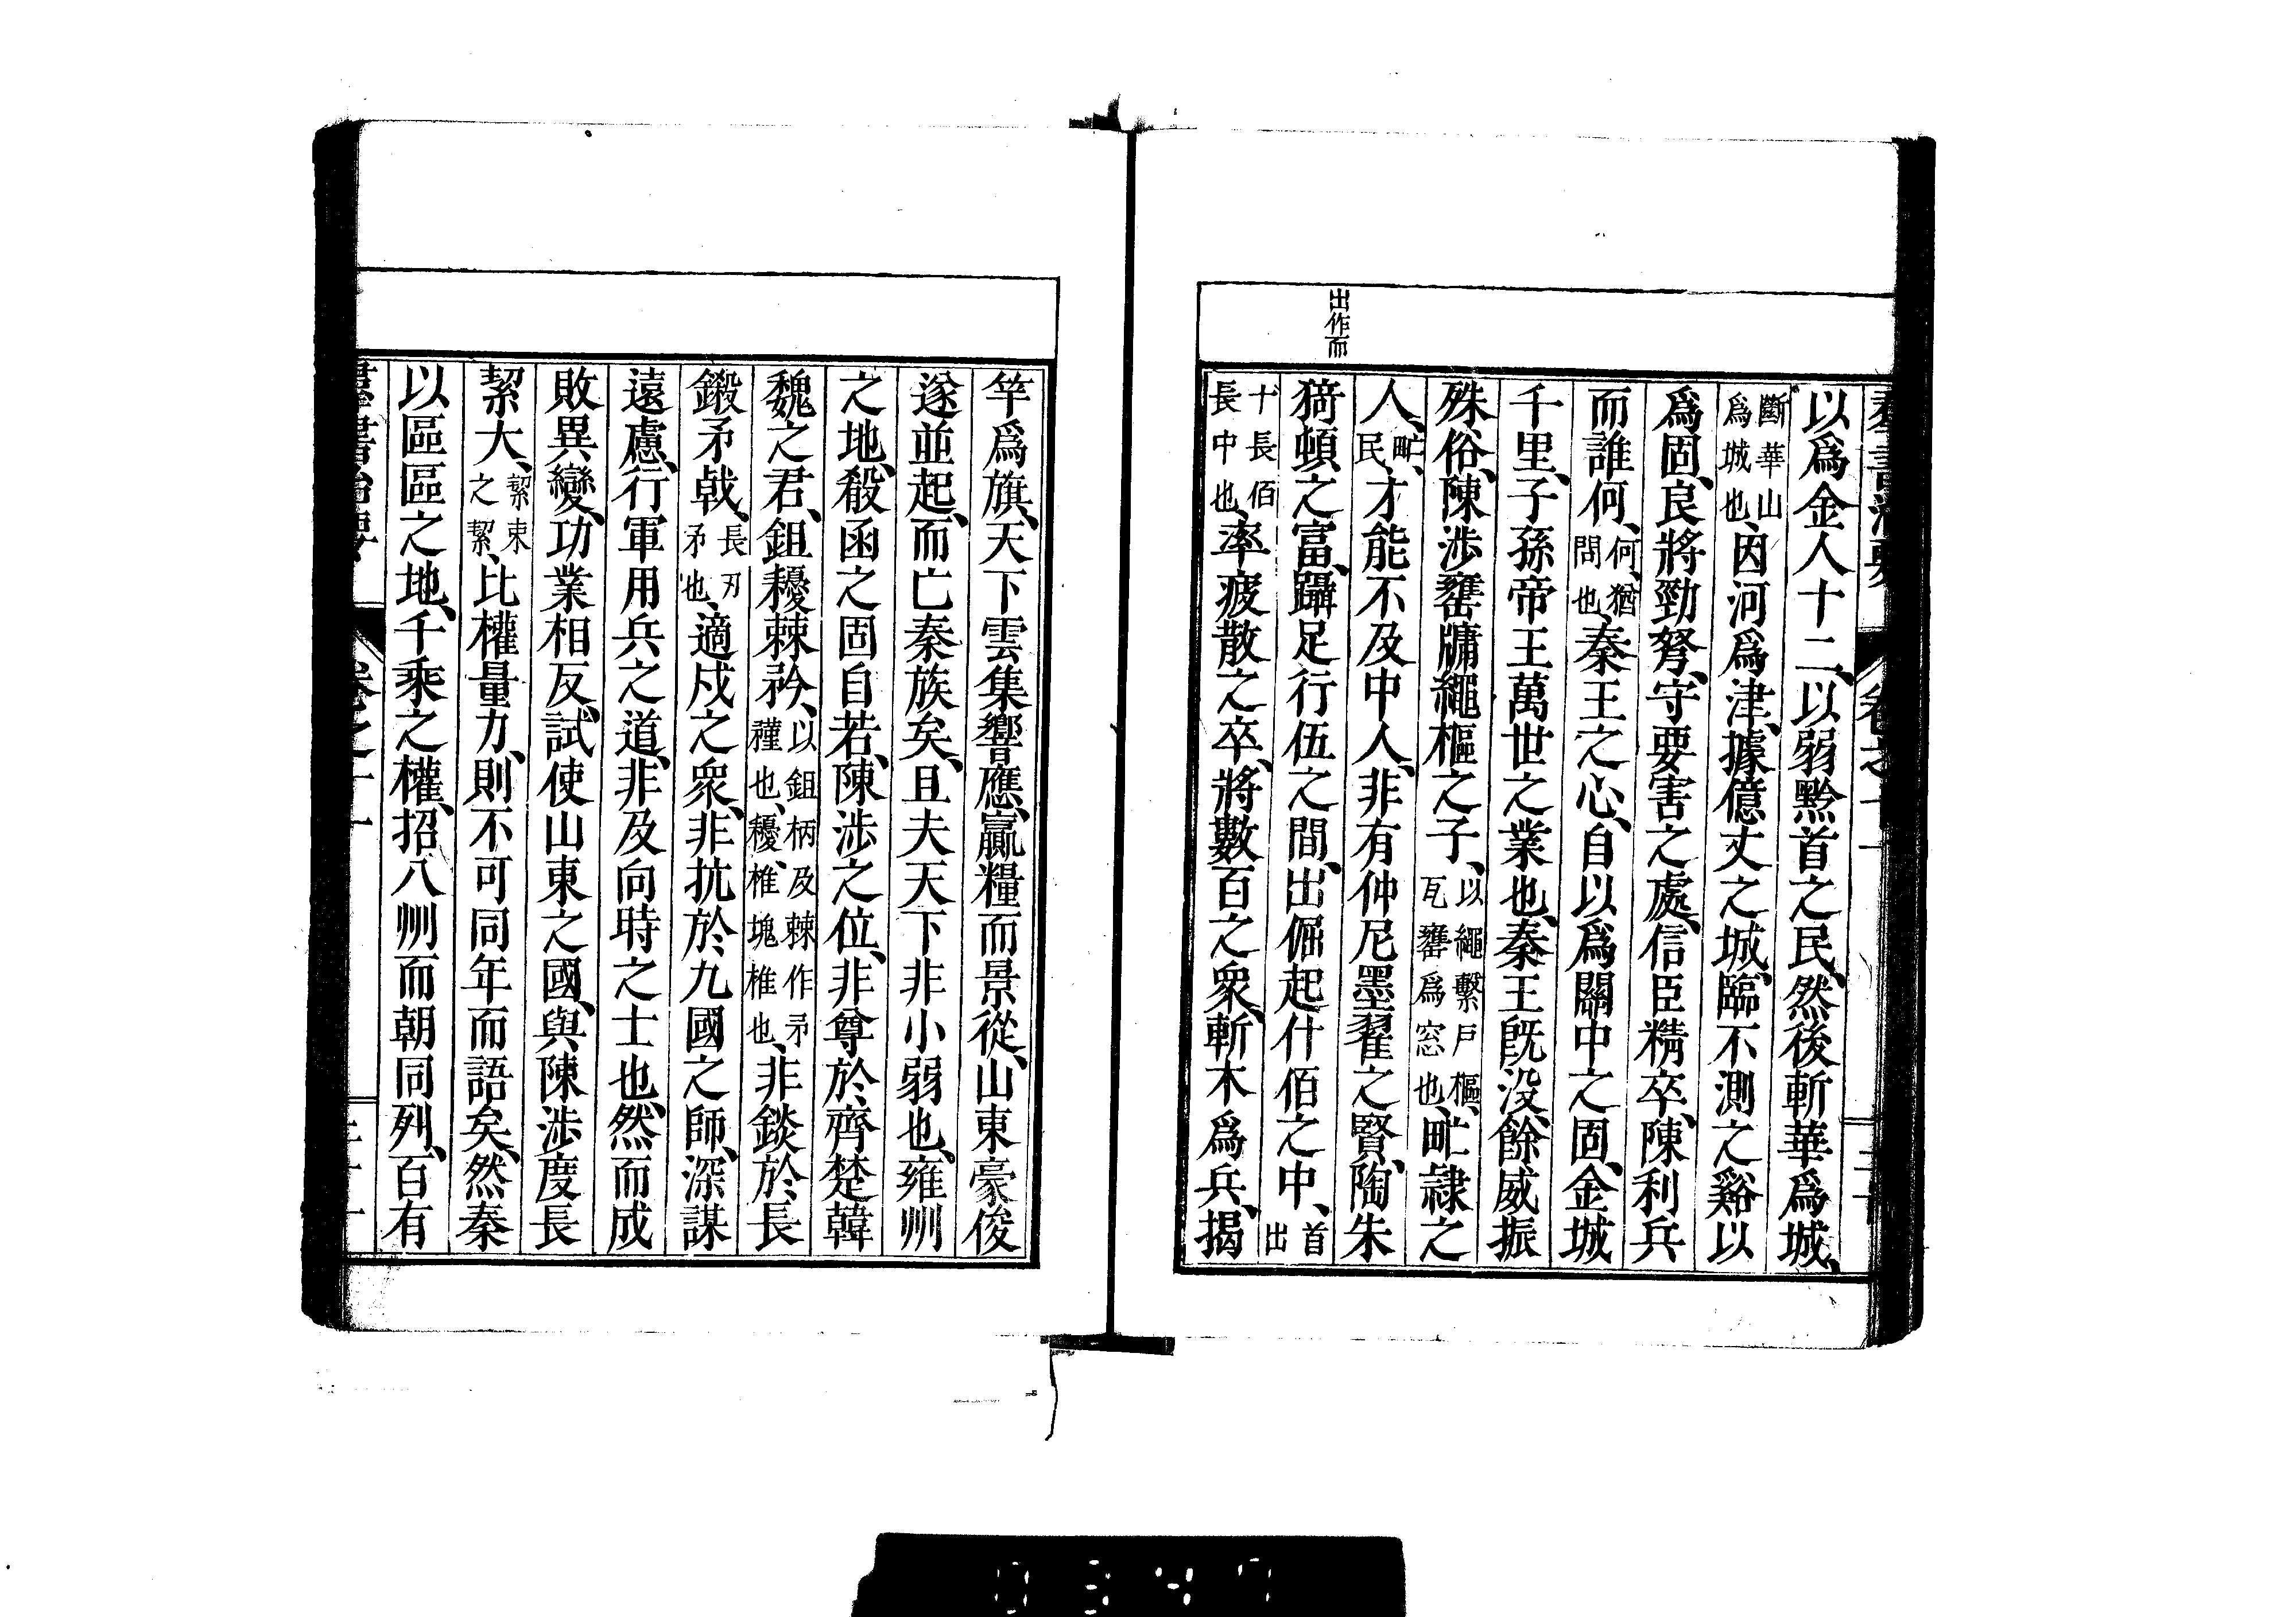 出作而
以爲金人十二、以弱黔首之民、然後斬華爲城、
斷華山爲城也、因河爲津、據億丈之城、臨不測之谿以
爲固、良將勁弩、守要害之處、信臣精卒、陳利兵
而誰何、何、猶問也、秦王之心、自以爲關中之固、金城
千里、子孫帝王萬世之業也、秦王既没、餘威振
殊俗、陳涉罋牖繩樞之子、以繩繫戶樞、瓦罋爲窓也、甿隷之
人、甿、民、才能不及中人、非有仲尼墨翟之賢、陶朱
猗頓之富、躡足行伍之間、出倔起什佰之中、首出
十長佰長中也、率疲散之卒、將數百之衆、斬木爲兵、揭
竿爲旗、天下雲集響應、贏糧而景從、山東豪俊
遂並起、而亡秦族矣、且夫天下非小弱也、雍州
之地、殽函之固自若、陳涉之位、非尊於齊楚韓
魏之君、鉏耰棘矜、以鉏柄及棘作矛𥎊也、耰、椎塊椎也、非錟於長
鎩矛戟、長刃矛也、適戍之衆、非抗於九國之師、深謀
遠慮、行軍用兵之道、非及向時之士也、然而成
敗異變、功業相反、試使山東之國、與陳涉度長
絜大、絜束之絜、比權量力、則不可同年而語矣、然秦
以區區之地、千乘之權、招八州而朝同列、百有
羣書治要 卷之十一